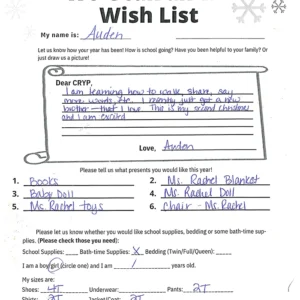 Wish List
My name is: Auden
Let us know how your year has been! How is school going? Have you been helpful to your family? Or
just draw us a picture!
Dear CRYP,
I am learning how to walk, share, say
more words, etc. I recently just got a new
brother that I love. This is my second christmas
and I am excited
Love, Auden
Please tell us what presents you would like this year!
1. Books 2. Ms. Rachel Blanket
3. Baby Doll 4. Ms. Rachel Doll
5. Ms. Rachel toys 6. Chair - Ms. Rachel
Please let us know whether you would like school supplies, bedding or some bath time sup-
plies. (Please check those you need):
School Supplies: Bath time Supplies: X Bedding (Twin/Full/Queen):
I am a boy/girl (circle one) and I am 1 years old.
My sizes are:
Shoes: 4T Underwear: Pants: 2T
Shirts: 2T Jacket/Coat: 2T